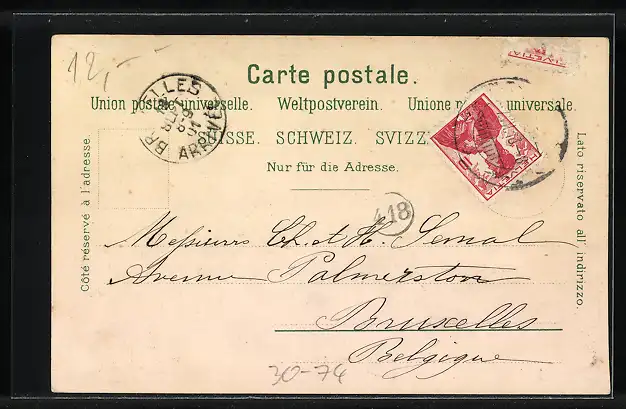 12,-
Carte postale.
Union postale universelle. Weltpostverein. Unione universale.
SUISSE. SCHWEIZ. SVIZZ
Nur für die Adresse.
BRUXELLES
ARRIVÉE
Côté réservé à l'adresse.
Lato riservato all' indirizzo.
418
Messieurs Ch. et H. Semal
Avenue Palmerston
Bruxelles
Belgique
30-74